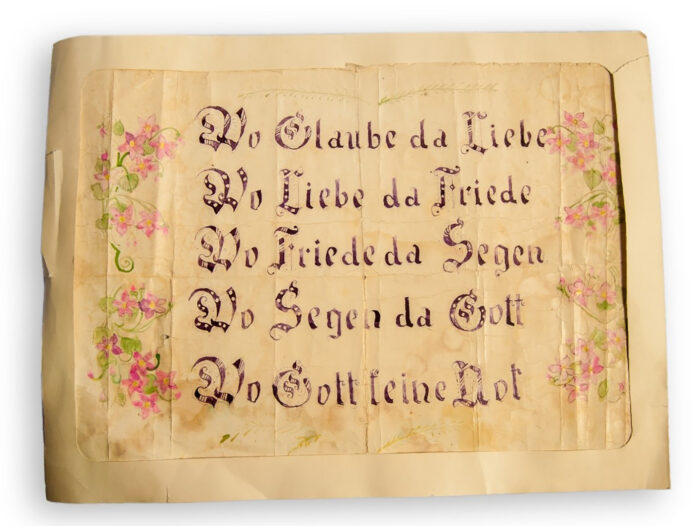 Wo Glaube da Liebe
Wo Liebe da Friede
Wo Friede da Segen
Wo Segen da Gott
Wo Gott keine Not